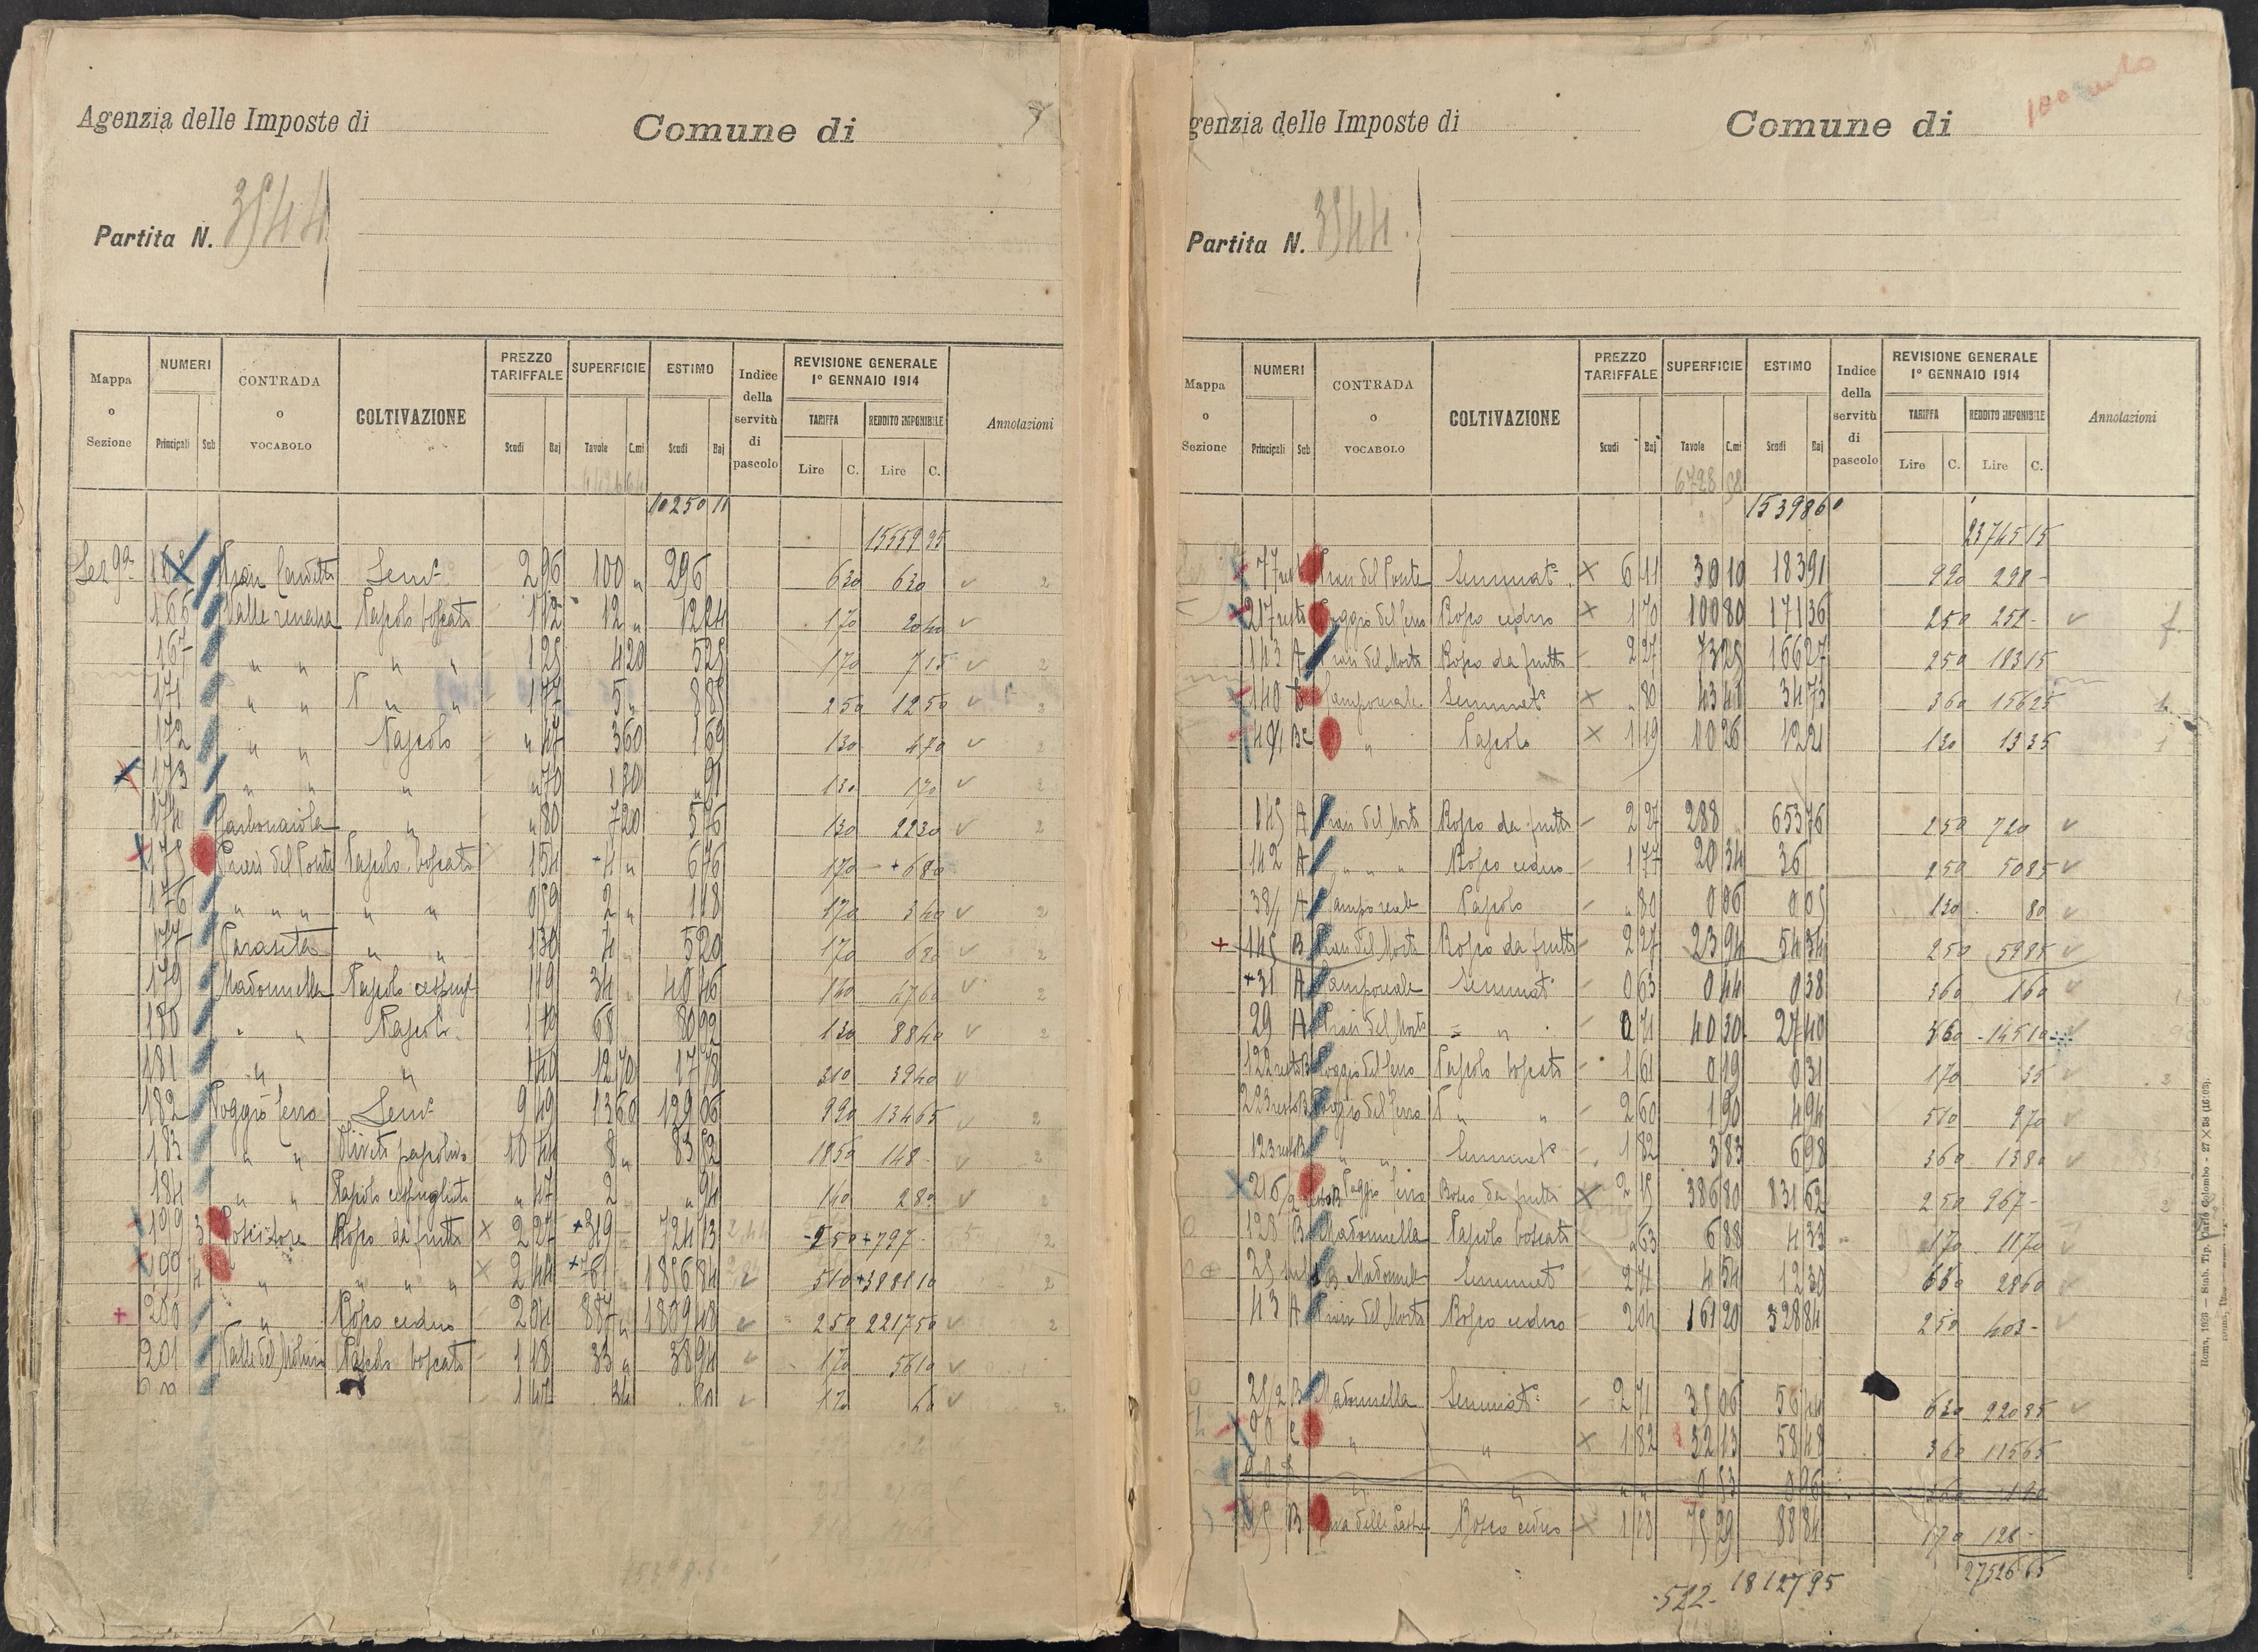 Agenzia delle Imposte di
Comune di
Partita N. 3544
Mappa o Sezione
NUMERI
Principali Sub
CONTRADA o VOCABOLO
COLTIVAZIONE
PREZZO TARIFFALE
Scudi Baj
SUPERFICIE
Tavole C.mi
ESTIMO
Scudi Baj
Indice della servitù di pascolo
REVISIONE GENERALE
1° GENNAIO 1914
TARIFFA
Lire C.
REDDITO IMPONIBILE
Lire C.
Annotazioni
10250 11
15559 95
Sez 9a Sem° 2 96 100 " 296 630 630
166 Pascolo boscato 1 12 12 " 170 20 40
167 " " " " 1 25 4 20 5 25 170 7 15
171 " " " " 1 77 5 " 8 85 250 12 50
172 " " Pascolo " 47 3 60 1 69 130 4 70
173 " " " " 70 1 30 " 91 130 1 70
174 Carbonaiola " " 80 7 20 5 76 130
175 Piani del Ponte Pascolo boscato 1 54 4 " 170 + 6 80
176 " " " " " 0 59 2 " 1 18 170 3 40
177 " " 1 30 4 " 5 20 170 6 80
179 Madonnella Pascolo cespugl 1 19 34 " 40 46 140 47 60
180 " " Pascolo 1 19 68 80 92 130 88 40
181 " " 1 40 12 70 17 78 310 39 40
182 Poggio ferro Sem° 9 49 13 60 129 06 990 134 65
183 " " Oliveto pascolivo 10 44 8 " 83 52 1850 148 -
184 " " Pascolo cespugliato " 47 2 " 94 140 2 80
199 3 Bosco da frutto × 2 27 +319 724 13 250 +797 -
199 4 " " " " × 2 44 +761 1856 84 510 +3881 10
200 " Bosco ceduo 2 04 887 " 1809 48 250 2217 50
201 Valle del Molino Pascolo boscato 1 18 33 " 38 94 170 56 10
Agenzia delle Imposte di
Comune di
Partita N. 3544
Mappa o Sezione
NUMERI
Principali Sub
CONTRADA o VOCABOLO
COLTIVAZIONE
PREZZO TARIFFALE
Scudi Baj
SUPERFICIE
Tavole C.mi
ESTIMO
Scudi Baj
Indice della servitù di pascolo
REVISIONE GENERALE
1° GENNAIO 1914
TARIFFA
Lire C.
REDDITO IMPONIBILE
Lire C.
Annotazioni
6728 98
15398 60
23745 15
77 Piani del Ponte Seminat° × 6 11 30 10 183 91 990 298 -
217 resto Poggio del ferro Bosco ceduo × 1 70 100 80 171 36 250 252 -
143 A Piani del Morto Bosco da frutto 2 27 73 25 166 27 250 183 15
140 Camporeale Seminat° × " 80 43 41 34 73 360 156 25
" Pascolo × 1 19 10 26 12 21 130 13 35
145 A Piani del Morto Bosco da frutto 2 27 288 653 76 250 720
142 A " " " Bosco ceduo 1 77 20 34 36 250 50 85
38/1 A Camporeale Pascolo " 80 0 06 0 05 130 80
145 B Piani del Morto Bosco da frutto 2 27 23 94 54 34 250 59 85
+31 A Camporeale Seminat° 0 63 0 44 0 38 360 1 60
29 A Piani del Morto " " 0 71 40 30 27 40 360 145 10
122 resto B Poggio del ferro Pascolo boscato 1 61 0 19 0 31 170 35
223 resto B Poggio del ferro " " 2 60 1 90 4 94 510 9 70
123 resto B " " Seminat° 1 82 3 83 6 98 360 13 80
216/2 Poggio ferro Bosco da frutto × 2 15 386 80 831 62 250 967 -
128 B Madonnella Pascolo boscato " 63 6 88 4 33 170 11 70
25 B Madonnella Seminat° 2 71 4 54 12 30 630 28 60
43 A Piani del Morto Bosco ceduo 2 04 161 20 328 84 250 403 -
25/2 B Madonnella Seminat° 2 71 35 06 630 220 85
90 C " " × 1 82 32 13 58 48 360 115 65
" " " " 0 53 0 96 360 1 90
B Bosco ceduo × 1 18 75 29 88 84 170 128 -
522 - 18127 95 27526 65
Roma, 1923 — Stab. Tip. Carlo Colombo - 27 × 38 (16:03).